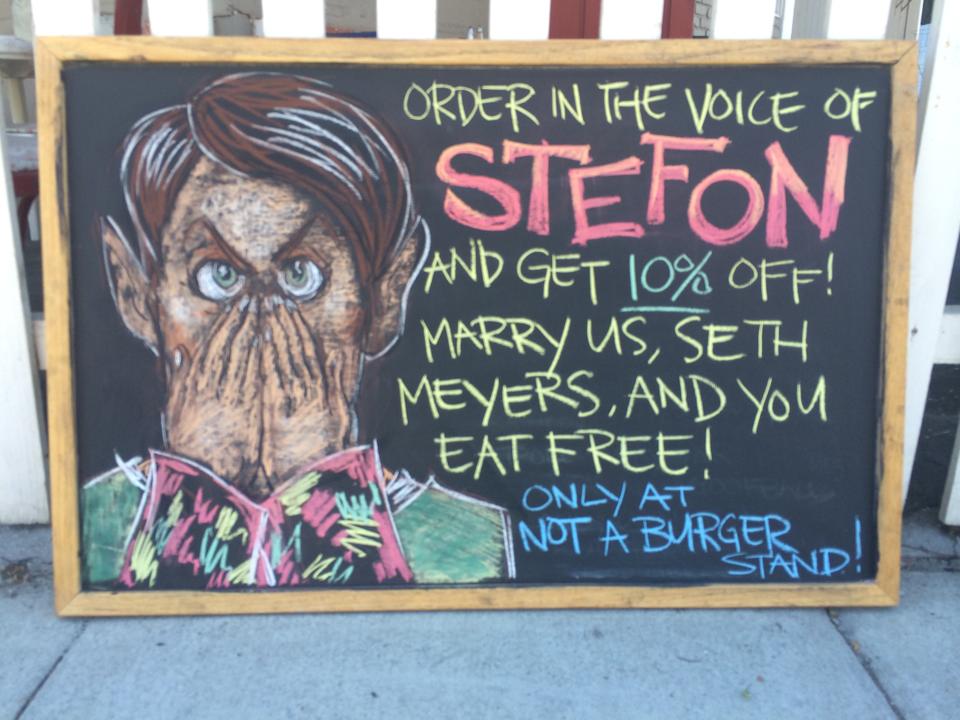 ORDER IN THE VOICE OF
STEFON
AND GET 10% OFF!
MARRY US, SETH
MEYERS, AND YOU
EAT FREE!
ONLY AT
NOT A BURGER
STAND!